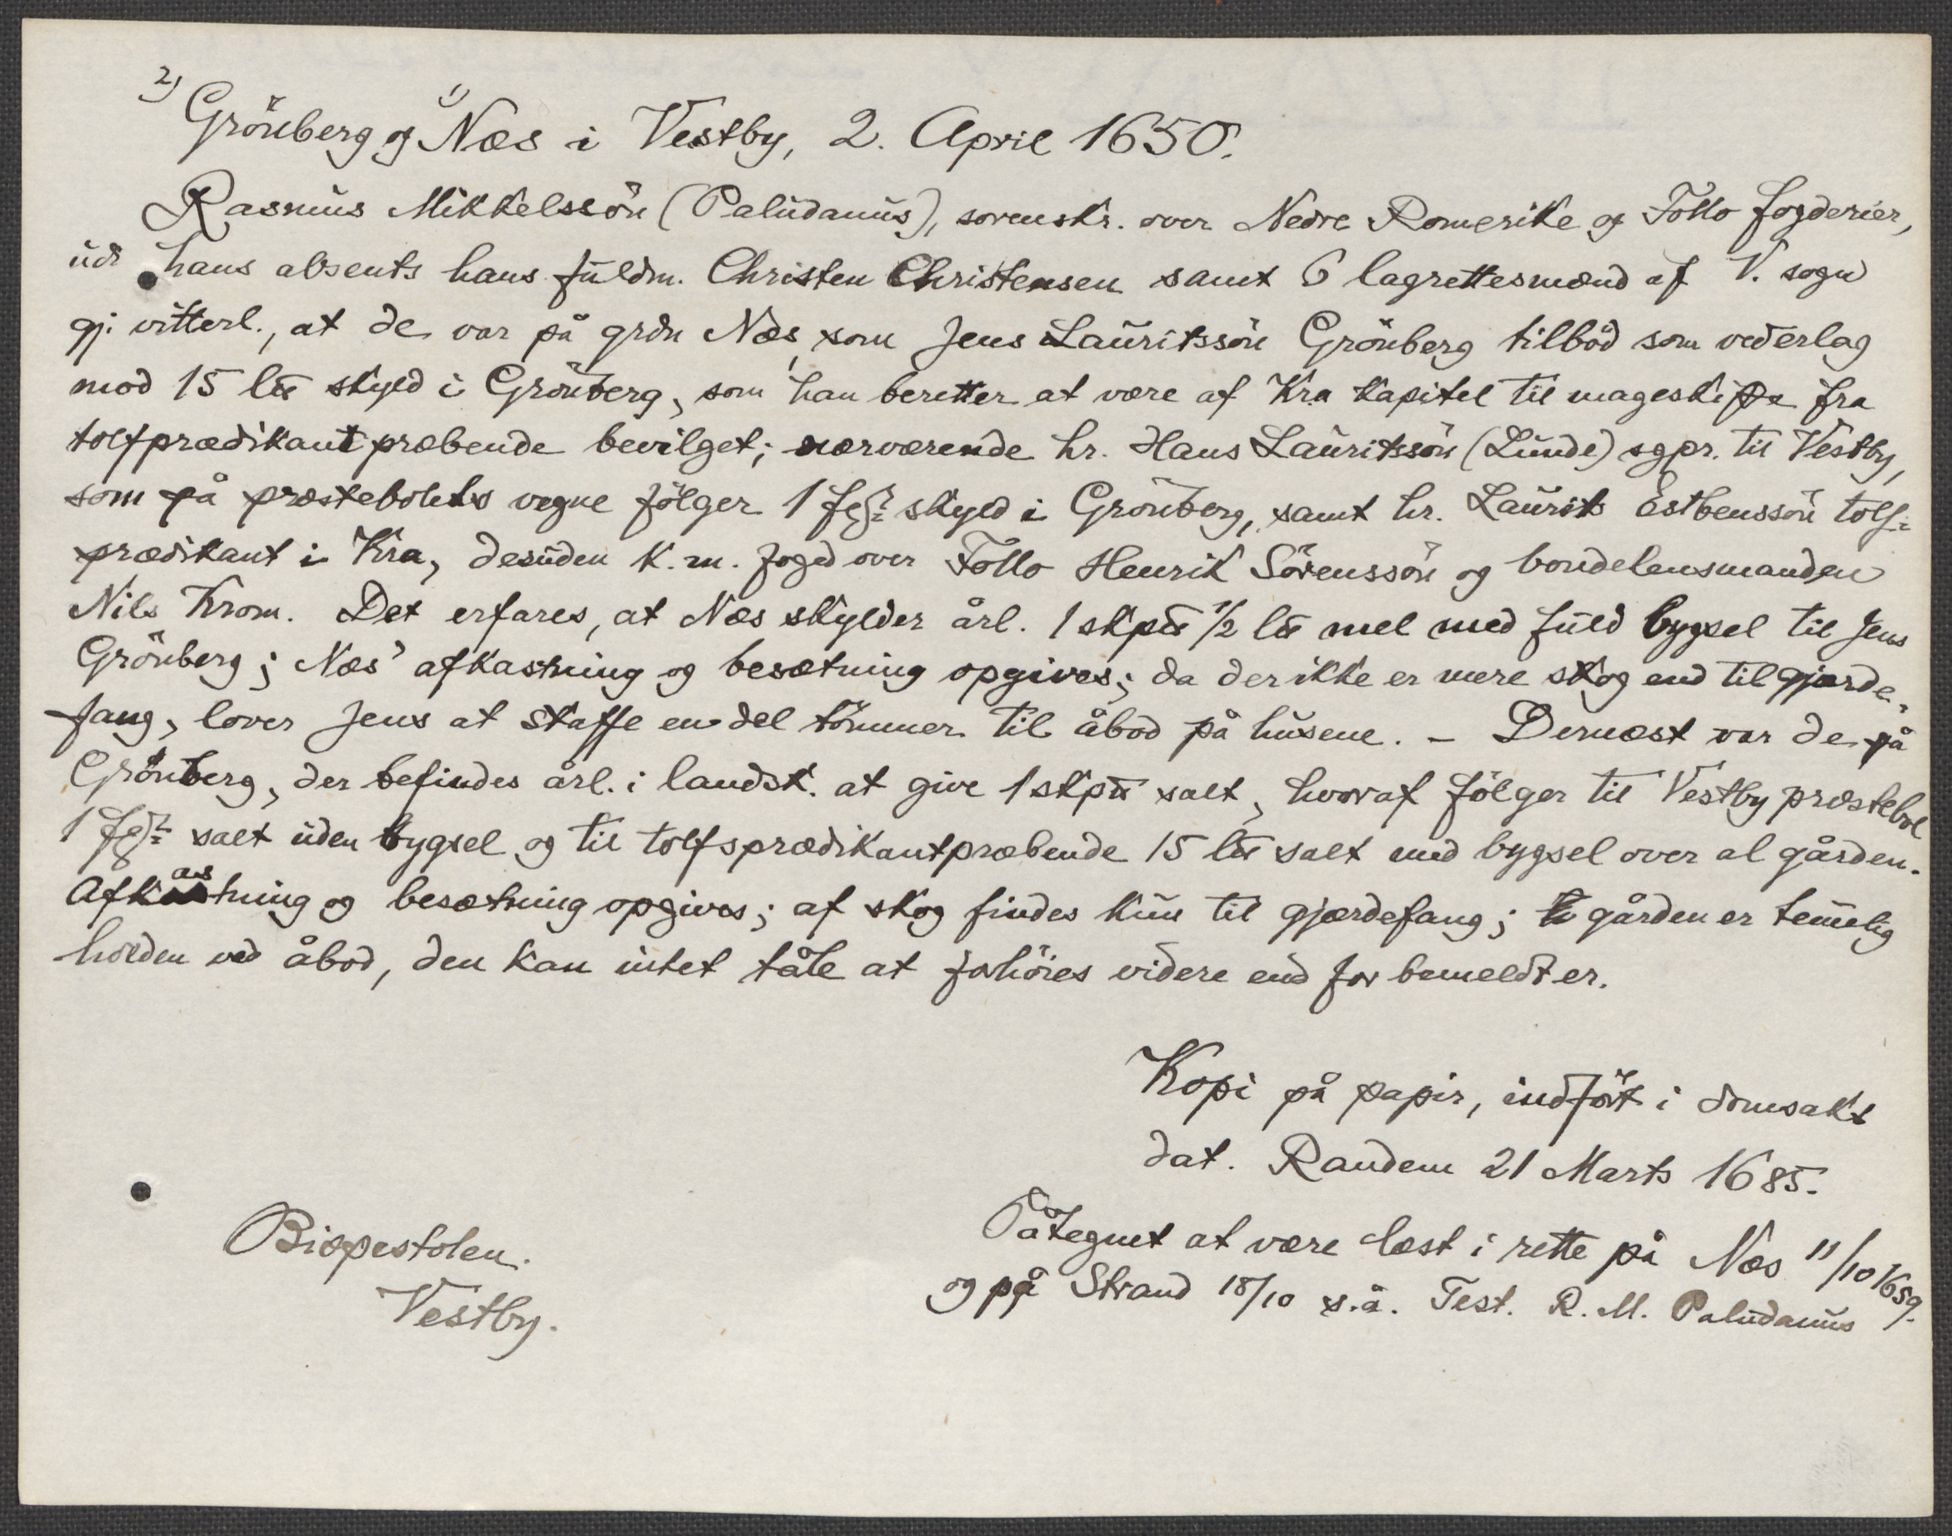 2) Grönberg og 1) Næs i Vestby, 2. April 1650.
Rasmus Mikkelssön (Paludanus), sorenskr. over Nedre Romerike og Follo fogderier,
udi hans absents hans fuldm. Christen Christensen samt 6 lagrettesmænd af V. sogn
gj. vitterl., at de var på grdn Næs, som Jens Lauritssön Grönberg tilböd som vederlag
mod 15 l℔ skyld i Grönberg, som han beretter at være af Kra kapitel til mageskifte fra
tolfprædikantpræbende bevilget; nærværende hr. Hans Lauritssön (Lunde) sgpr. til Vestby,
som på præstebolets vegne fölger 1 fjg skyld i Grönberg, samt hr. Laurits Estbenssön tolf-
prædikant i Kra, desuden k. m. foged over Follo Henrik Sörenssön og bondelensmanden
Nils Krom. Det erfares, at Næs skylder årl. 1 skp℔ 1/2 l℔ mel med fuld bygsel til Jens
Grönberg; Næs' afkastning og besætning opgives; da der ikke er mere skog end til gjærde-
fang, lover Jens at skaffe en del tömmer til åbod på husene. – Dernæst var de på
Grönberg, der befindes årl. i landsk. at give 1 skp℔ salt, hvoraf fölger til Vestby præstebol
1 fjg salt uden bygsel og til tolfsprædikantpræbende 15 l℔ salt med bygsel over al gården.
Afkastning og besætning opgives; af skog findes kun til gjærdefang; gården er temelig
holden ved åbod, den kan intet tåle at forhöies videre end for bemeldt er.
Kopi på papir, indfört i domsakt
dat. Randem 21 Marts 1685.
Påtegnet at være læst i rette på Næs 11/10 1659.
og på Strand 18/10 s.å. Test. R. M. Paludanus
Bispestolen.
Vestby.